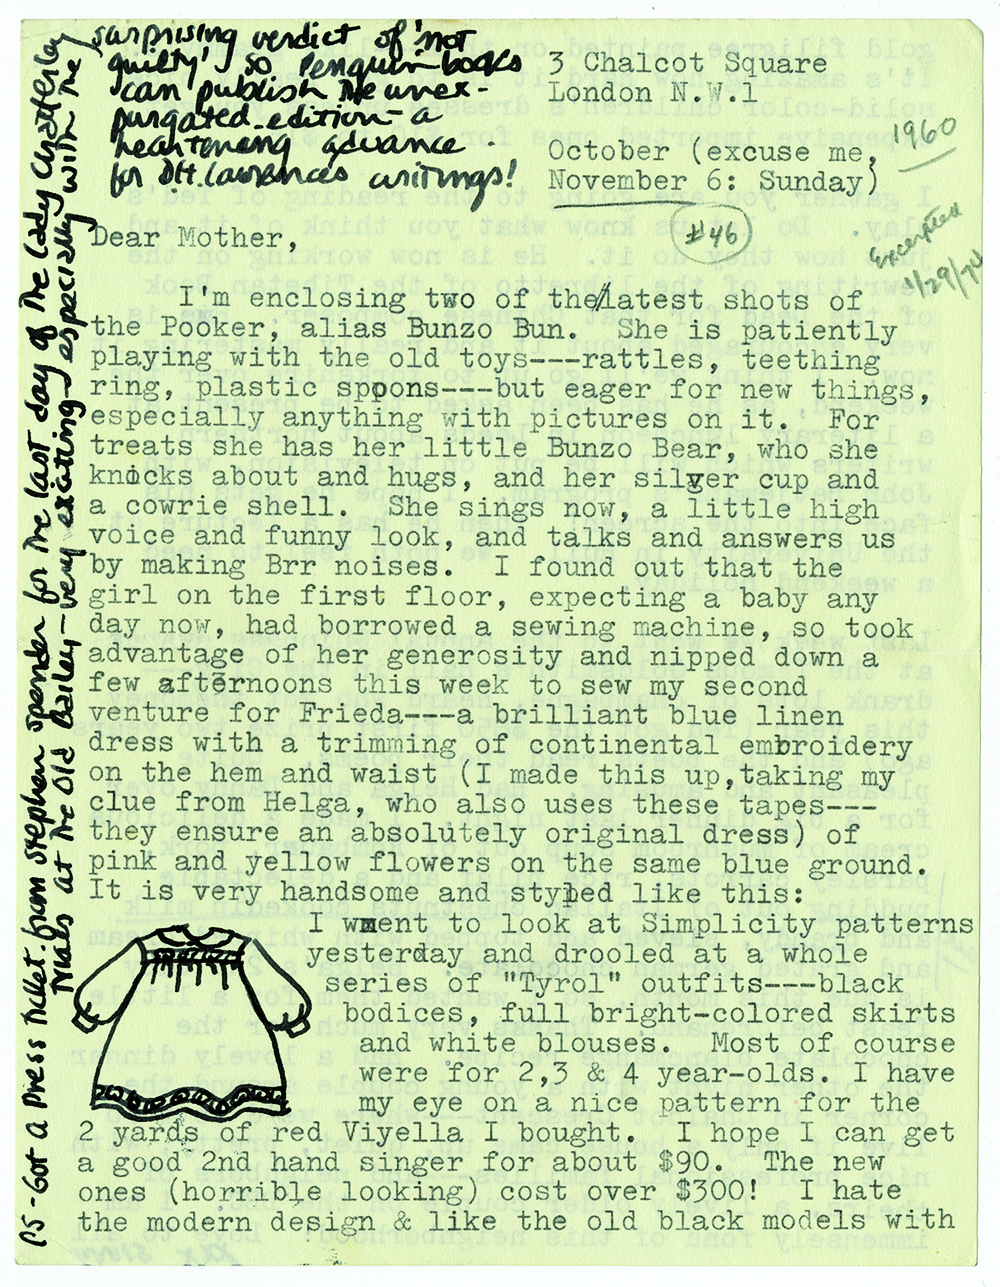 3 Chalcot Square
London N.W.1
1960
October (excuse me,
November 6: Sunday)
#46
Excerpted
1/29/74
Dear Mother,
I'm enclosing two of the/latest shots of
the Pooker, alias Bunzo Bun. She is patiently
playing with the old toys---rattles, teething
ring, plastic spoons---but eager for new things,
especially anything with pictures on it. For
treats she has her little Bunzo Bear, who she
knocks about and hugs, and her silver cup and
a cowrie shell. She sings now, a little high
voice and funny look, and talks and answers us
by making Brr noises. I found out that the
girl on the first floor, expecting a baby any
day now, had borrowed a sewing machine, so took
advantage of her generosity and nipped down a
few afternoons this week to sew my second
venture for Frieda---a brilliant blue linen
dress with a trimming of continental embroidery
on the hem and waist (I made this up,taking my
clue from Helga, who also uses these tapes---
they ensure an absolutely original dress) of
pink and yellow flowers on the same blue ground.
It is very handsome and styled like this:
I went to look at Simplicity patterns
yesterday and drooled at a whole
series of "Tyrol" outfits---black
bodices, full bright-colored skirts
and white blouses. Most of course
were for 2,3 & 4 year-olds. I have
my eye on a nice pattern for the
2 yards of red Viyella I bought. I hope I can get
a good 2nd hand singer for about $90. The new
ones (horrible looking) cost over $300! I hate
the modern design & like the old black models with
PS - Got a Press ticket from Stephen Spender for the last day of the Lady Chatterley
Trials at the Old Bailey - very exciting - especially with the
surprising verdict of 'not
guilty' so Penguin books
can publish the unex-
purgated edition - a
heartening advance
for D.H. Lawrence's writings!